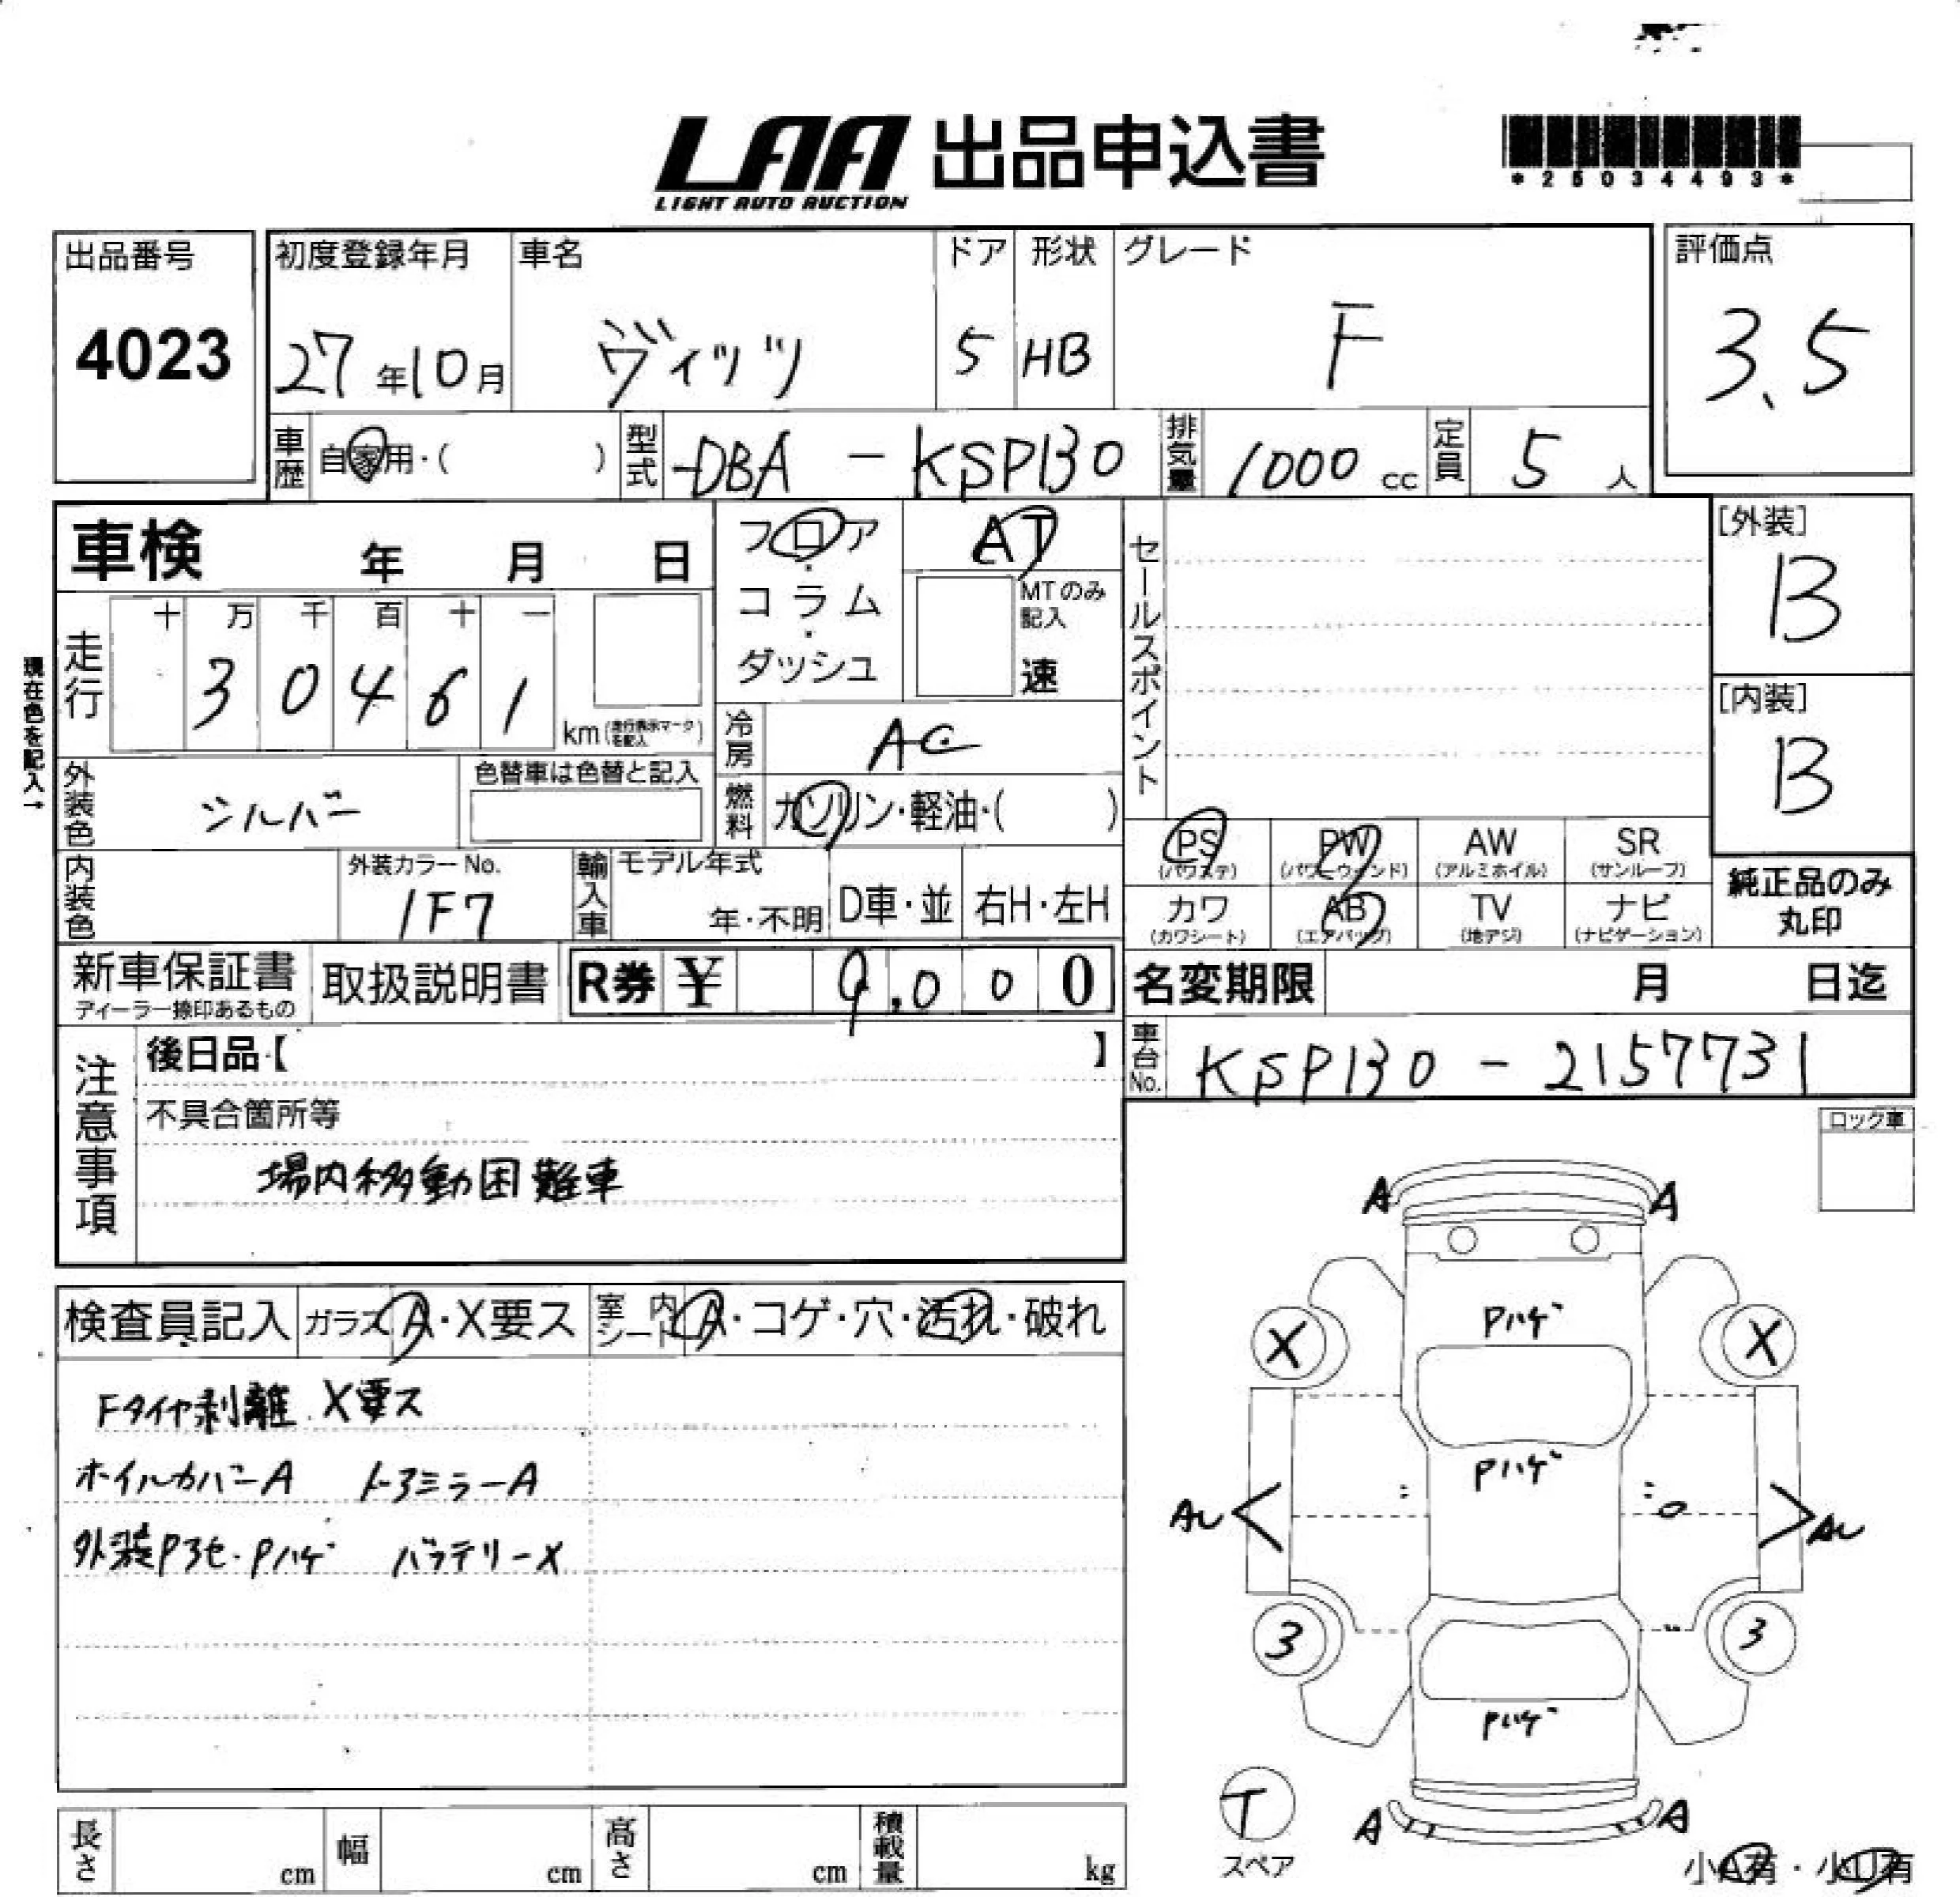 LAA 出品申込書
LIGHT AUTO AUCTION
*25034493*
出品番号
4023
初度登録年月
27年10月
車名
ヴィッツ
ドア
5
形状
HB
グレード
F
評価点
3.5
車歴
自家用・( )
型式
DBA - KSP130
排気量
1000 cc
定員
5 人
車検 年 月 日
フロア・コラム・ダッシュ
AT
MTのみ記入
速
セールスポイント
[外装]
B
[内装]
B
現在色を記入→
走行
十 万 千 百 十 一
3 0 4 6 1
km(走行表示マークを記入)
冷房
AC
外装色
シルバー
色替車は色替と記入
燃料
ガソリン・軽油・( )
PS (パワステ)
PW (パワーウィンド)
AW (アルミホイル)
SR (サンルーフ)
カワ (カワシート)
AB (エアバッグ)
TV (地デジ)
ナビ (ナビゲーション)
純正品のみ
丸印
内装色
外装カラーNo.
1F7
輸入車
モデル年式
年・不明
D車・並
右H・左H
新車保証書
ディーラー捺印あるもの
取扱説明書
R券 ¥ 9,000
名変期限 月 日迄
車台No.
KSP130 - 2157731
注意事項
後日品【 】
不具合箇所等
場内移動困難車
ロック車
検査員記入
ガラス A・X要ス
室内シート A・コゲ・穴・汚れ・破れ
Fタイヤ剥離 X要ス
ホイルカバーA ドアミラーA
外装P3セ・Pハゲ バッテリーX
A A
Pハゲ
X X
Pハゲ
AU AU
3 3
Pハゲ
T
スペア
A A
小A有・小U有
長さ cm
幅 cm
高さ cm
積載量 kg